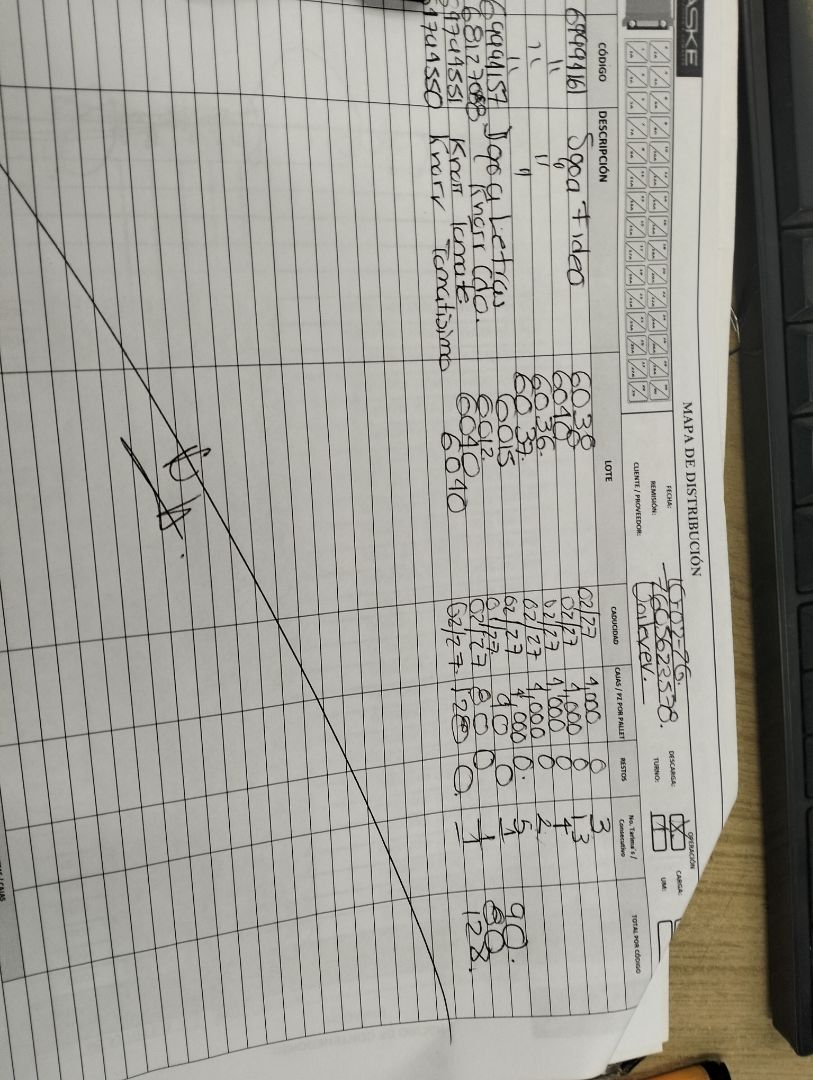 ASKE
MAPA DE DISTRIBUCIÓN
FECHA: 10-02-26.
REMISIÓN: 7603622578.
CLIENTE / PROVEEDOR: Unilever.
OPERACIÓN
DESCARGA: X CARGA:
TURNO: 1 UM:
CÓDIGO DESCRIPCIÓN LOTE CADUCIDAD CAJAS / PZ POR PALLET RESTOS No. Tarima´s / Consecutivo TOTAL POR CÓDIGO
69999161 Sopa Fideo 6038 02/27 4,000 0 3
" " 6040 02/27 4,000 0 13
" " 6036. 02/27 4,000 0 4
" " 6037. 02/27 4,000 0 2
Sopa Letras 6015 02/27 4,000 0. 5
Knorr Cdo. 6012 01/27. 90 0 1 90.
69744551 Knorr Tomate 6040 02/27 80 0 1 80
Knorr Tomatisimo 6040 02/27. 128 0. 1 128.